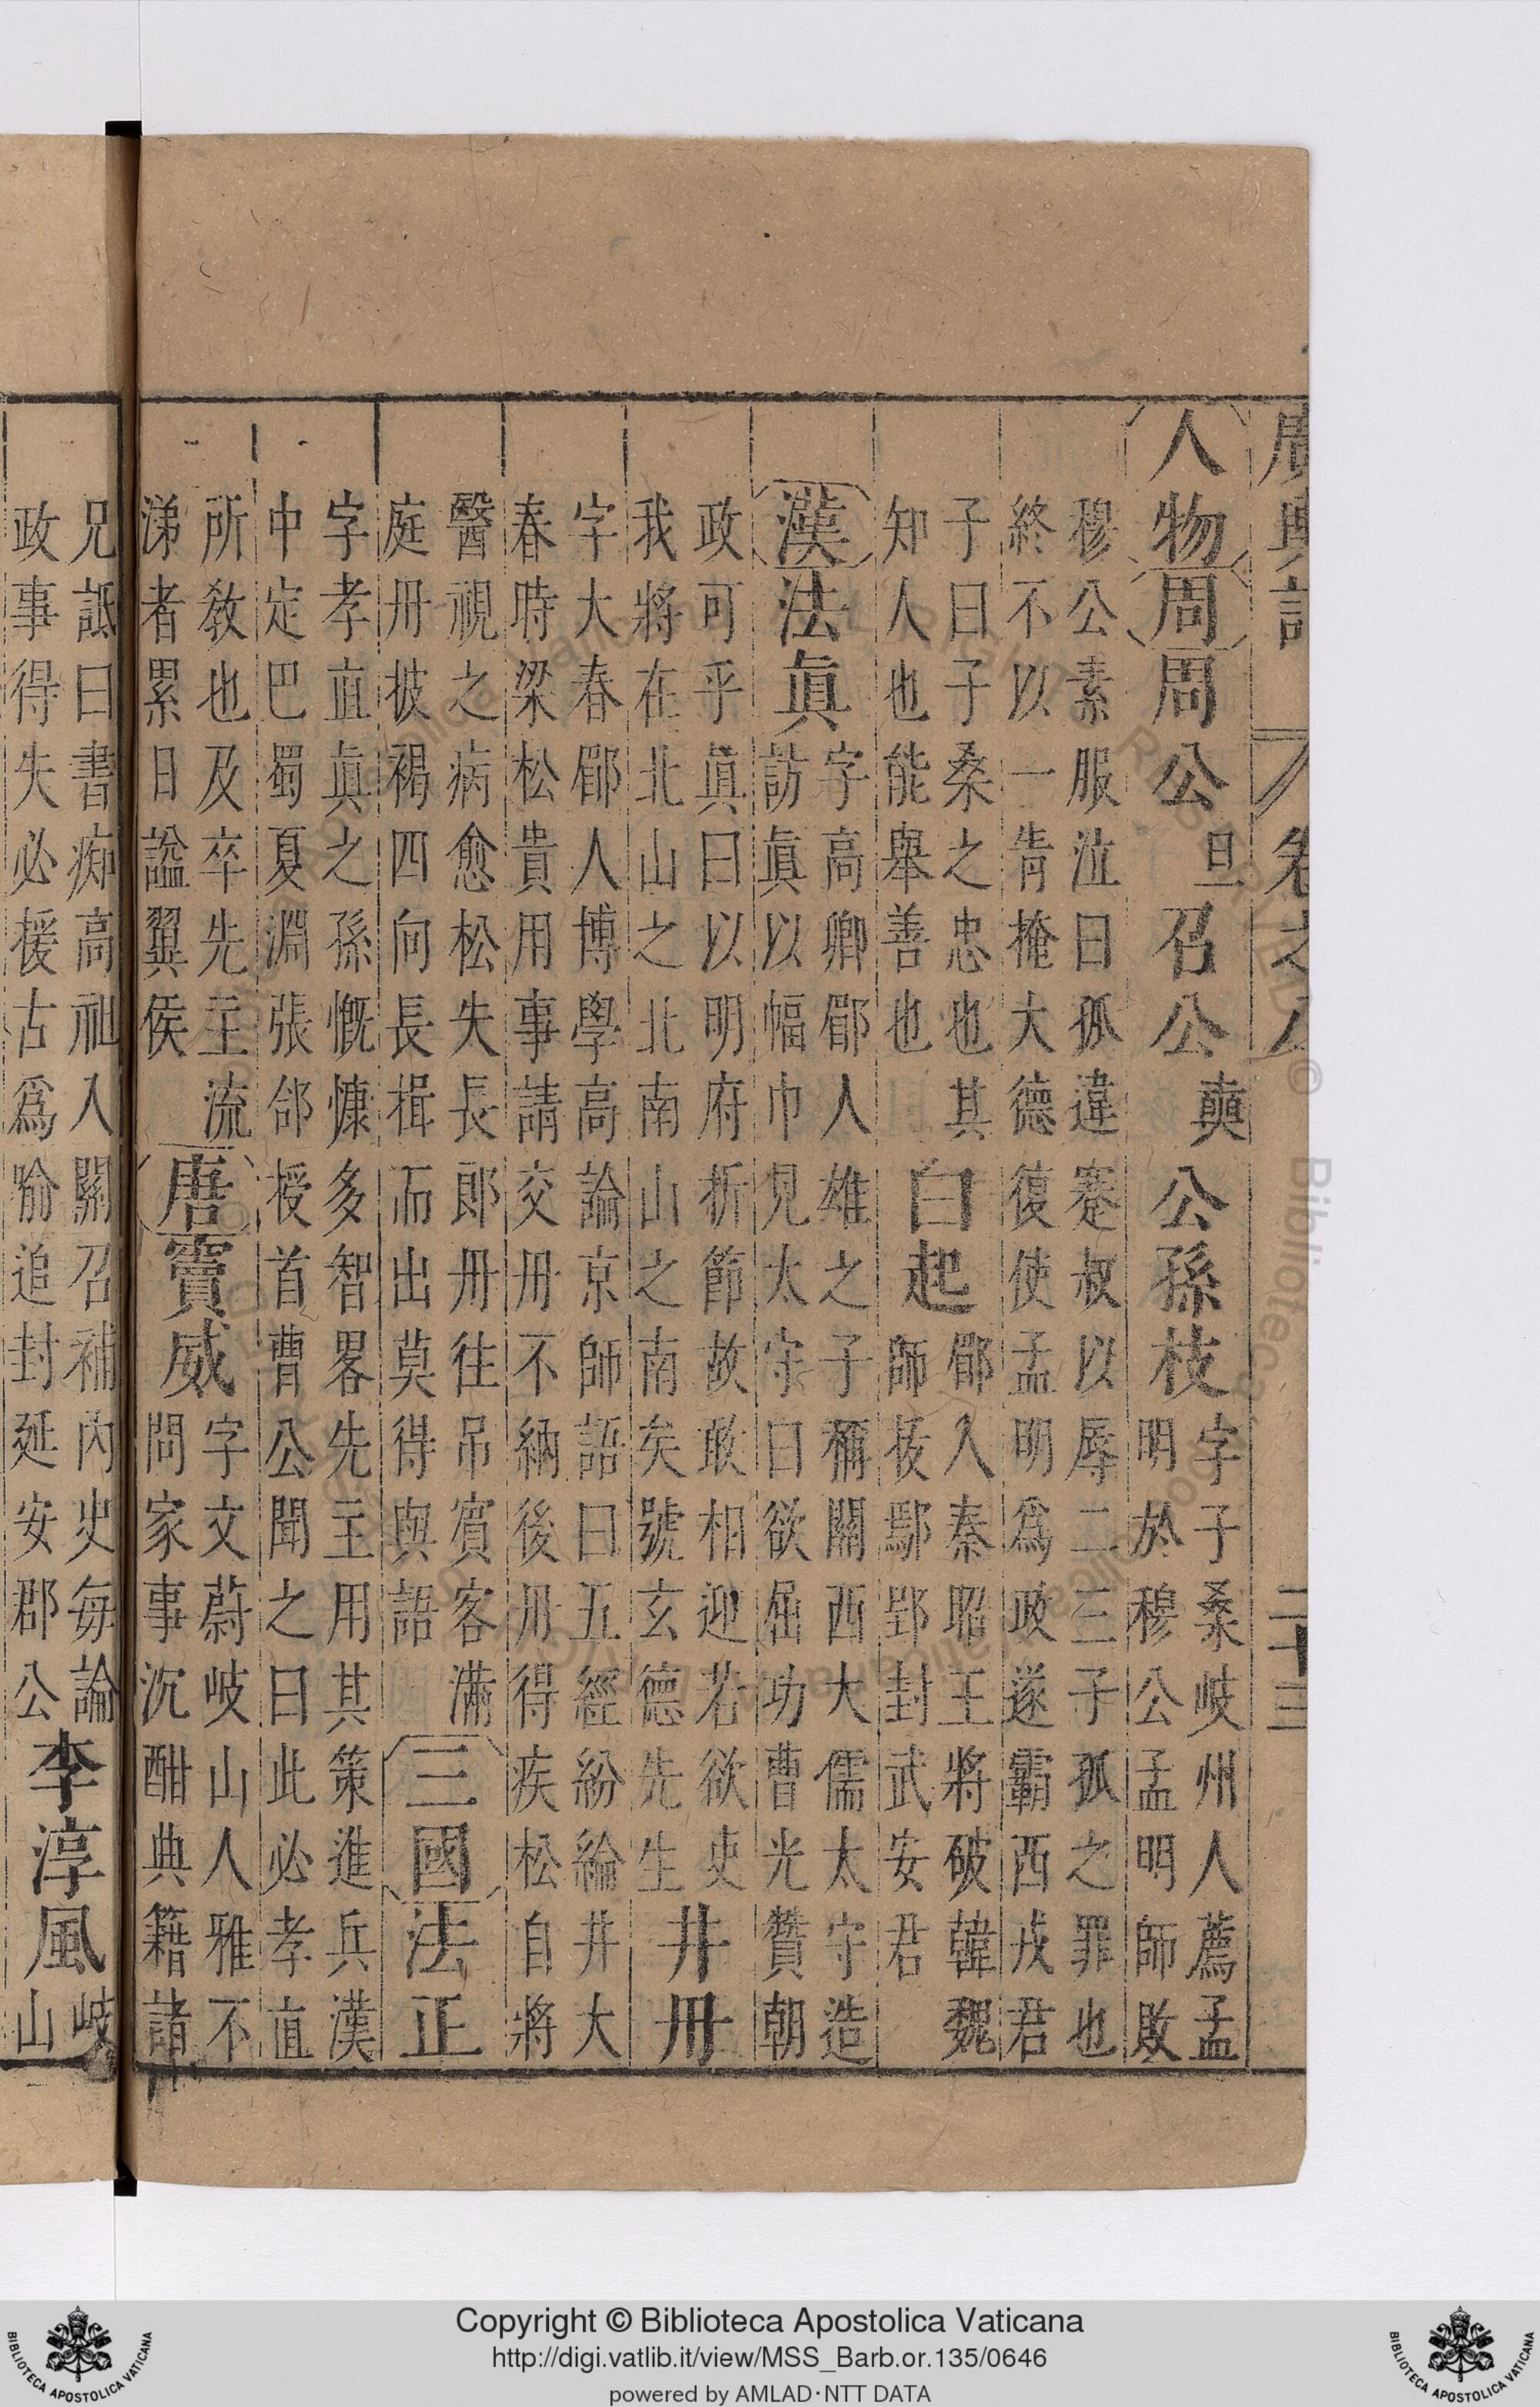 廣輿記 卷之八 二十三
人物 周 周公 旦 召公 奭 公孫枝 字子桑岐州人薦孟
明於穆公孟明師敗
穆公素服泣曰孤違蹇叔以辱二三子孤之罪也
終不以一眚掩大德復使孟明爲政遂霸西戎君
子曰子桑之忠也其
知人也能舉善也
白起 郿入秦昭王將破韓魏
師拔鄢郢封武安君
漢 法真 字高卿郿人雄之子稱關西大儒太守造
訪真以幅巾見太守曰欲屈功曹光贊朝
政可乎真曰以明府折節故敢相迎若欲吏
我將在北山之北南山之南矣號玄德先生
井丹
字大春郿人博學高論京師語曰五經紛綸井大
春時梁松貴用事請交丹不納後丹得疾松自將
醫視之病愈松失長郎丹往吊賓客滿
庭丹披褐四向長揖而出莫得與語
三國 法正
字孝直真之孫慨慷多智畧先主用其策進兵漢
中定巴蜀夏淵張郃授首曹公聞之曰此必孝直
所敎也及卒先主流
涕者累日謚翼侯
唐 竇威 字文蔚岐山人雅不
問家事沉酣典籍諸
兄詆曰書痴高祖入關召補內史每論
政事得失必援古爲喻追封延安郡公
李淳風 岐
山
Copyright © Biblioteca Apostolica Vaticana
http://digi.vatlib.it/view/MSS_Barb.or.135/0646
powered by AMLAD·NTT DATA
BIBLIOTECA APOSTOLICA VATICANA
BIBLIOTECA APOSTOLICA VATICANA